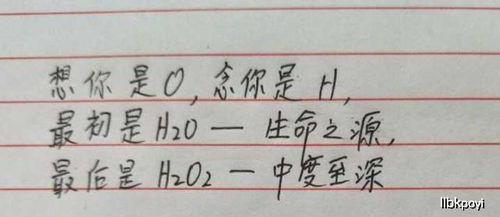 想你是O,念你是H,
最初是H2O — 生命之源,
最后是H2O2 — 中度至深
llbkpoyi